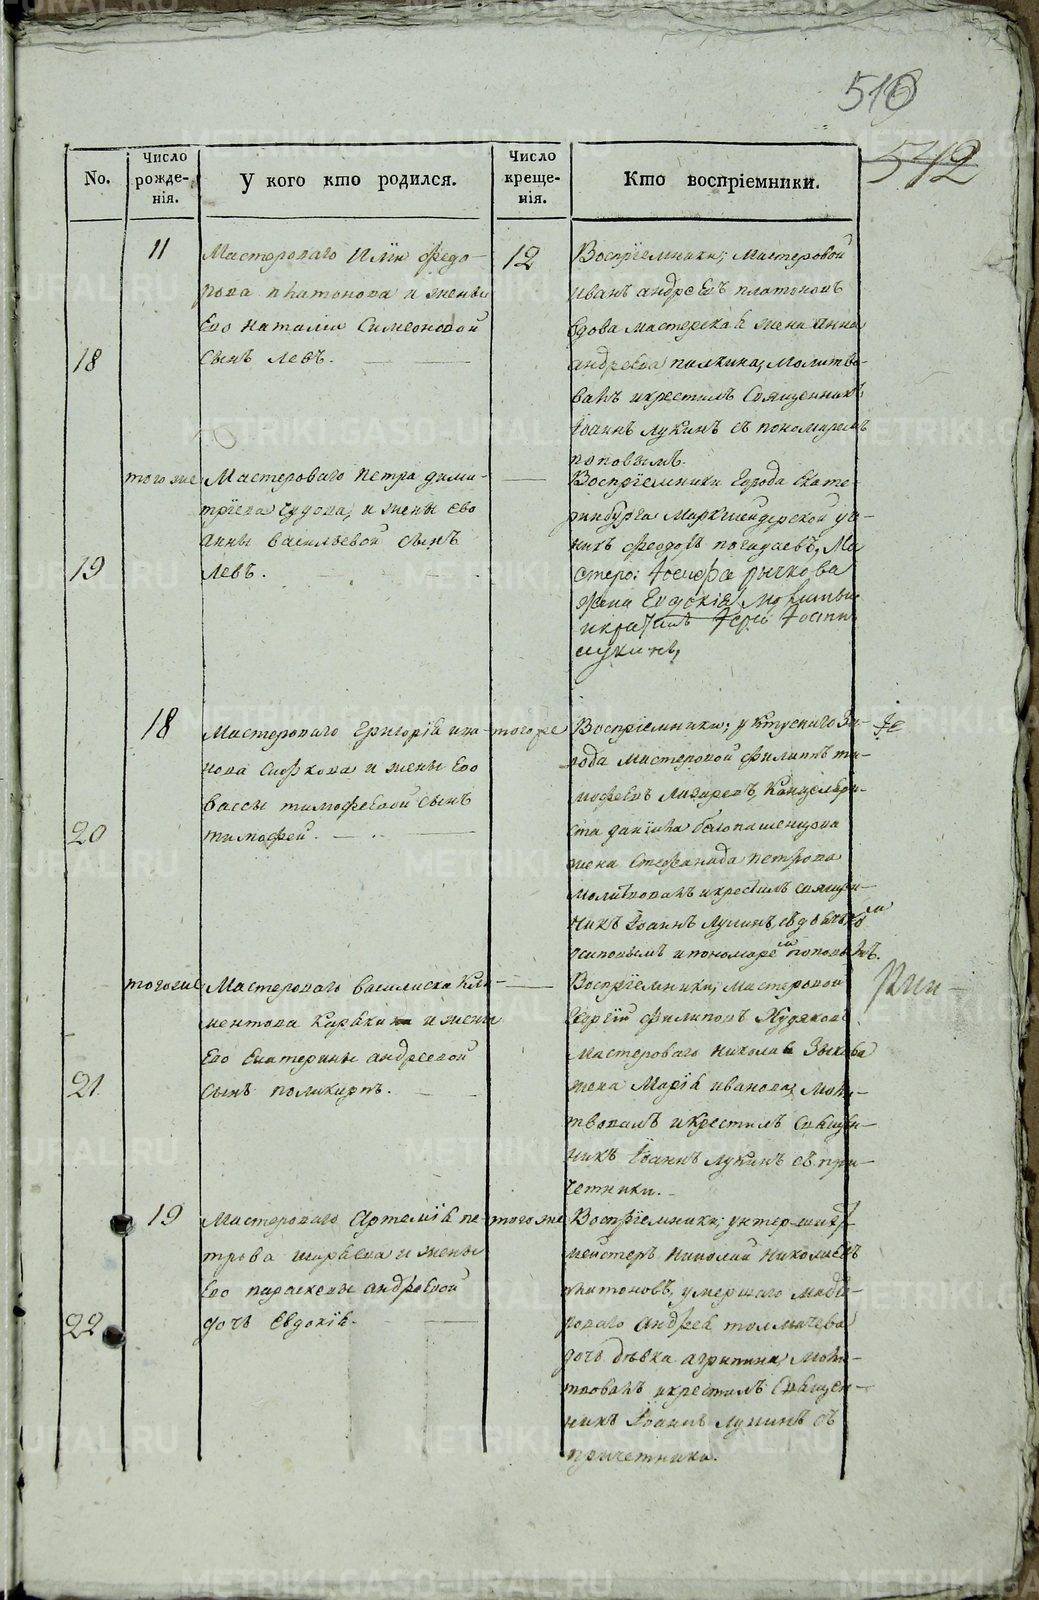 516
542
No.
Число рожде-нія.
У кого кто родился.
Число креще-нія.
Кто воспріемники.
18
11
Мастероваго Иліи Федо-
рова платонова и жены
Его Наталіи Симеоновой
сынъ левъ.
12
Воспріемники; мастеровой
иванъ андреевъ платоновъ
вдова мастерская жена анна
андреева палкина; молитво-
валъ и крестилъ Священникъ
Іоаннъ лукинъ съ пономаремъ
поповымъ.
19
того же
Мастероваго петра дими-
тріева чудова, и жены Ево
анны васильевой сынъ
левъ.
Воспріемники города Екате-
ринбурга Маркшейдерской уче-
никъ феодоръ
Мастеро: Іосифа рычкова
жена Евдокія
и крестилъ Іерей Іоаннъ
лукинъ,
20
18
Мастероваго Григорія ива-
нова и жены Его
вассы тимофеевой сынъ
тимофей.
того же
Воспріемники; уктускаго За-
вода мастеровой филиппъ ти-
мофеевъ лазаревъ, Канцеляри-
ста даніила белопашенцова
жена Стефанида петрова
молитвовалъ и крестилъ священ-
никъ Іоаннъ Лукинъ, съ дьячкомъ
осиповымъ и пономаремъ поповымъ.
21
того же
Мастероваго василиска Кли-
ментова и жены
Его Екатерины андреевой
сынъ поликарпъ.
Воспріемники; мастеровой
Георгій филиповъ Худяковъ
мастероваго николая Зыкова
жена Марія иванова; моли-
твовалъ и крестилъ Священ-
никъ Іоаннъ лукинъ съ при-
четники.
22
19
Мастероваго Артемія пе-
трова и жены
Его параскевы андреевой
дочь Евдокія.
того же
Воспріемники; унтер-шихт
мейстеръ николай николаевъ
платоновъ, умершаго масте-
роваго андрея толмачева
дочь девка агрипина; моли-
твовалъ и крестилъ Священ-
никъ Іоаннъ Лукинъ съ
причетники.
METRIKI.GASO-URAL.RU